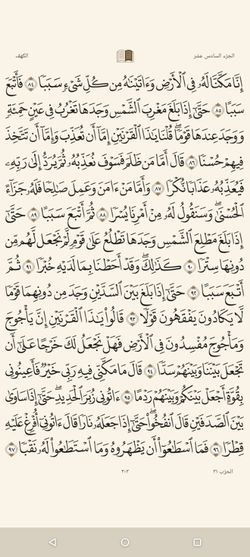 الجزء السادس عشر
الكهف
إِنَّا مَكَّنَّا لَهُۥ فِي ٱلْأَرْضِ وَءَاتَيْنَٰهُ مِن كُلِّ شَيْءٍ سَبَبًا ٨٤ فَأَتْبَعَ
سَبَبًا ٨٥ حَتَّىٰٓ إِذَا بَلَغَ مَغْرِبَ ٱلشَّمْسِ وَجَدَهَا تَغْرُبُ فِي عَيْنٍ حَمِئَةٍ
وَوَجَدَ عِندَهَا قَوْمًا ۗ قُلْنَا يَٰذَا ٱلْقَرْنَيْنِ إِمَّآ أَن تُعَذِّبَ وَإِمَّآ أَن تَتَّخِذَ
فِيهِمْ حُسْنًا ٨٦ قَالَ أَمَّا مَن ظَلَمَ فَسَوْفَ نُعَذِّبُهُۥ ثُمَّ يُرَدُّ إِلَىٰ رَبِّهِۦ
فَيُعَذِّبُهُۥ عَذَابًا نُّكْرًا ٨٧ وَأَمَّا مَنْ ءَامَنَ وَعَمِلَ صَٰلِحًا فَلَهُۥ جَزَآءً
ٱلْحُسْنَىٰ ۖ وَسَنَقُولُ لَهُۥ مِنْ أَمْرِنَا يُسْرًا ٨٨ ثُمَّ أَتْبَعَ سَبَبًا ٨٩ حَتَّىٰٓ
إِذَا بَلَغَ مَطْلِعَ ٱلشَّمْسِ وَجَدَهَا تَطْلُعُ عَلَىٰ قَوْمٍ لَّمْ نَجْعَل لَّهُم مِّن
دُونِهَا سِتْرًا ٩٠ كَذَٰلِكَ ۖ وَقَدْ أَحَطْنَا بِمَا لَدَيْهِ خُبْرًا ٩١ ثُمَّ
أَتْبَعَ سَبَبًا ٩٢ حَتَّىٰٓ إِذَا بَلَغَ بَيْنَ ٱلسَّدَّيْنِ وَجَدَ مِن دُونِهِمَا قَوْمًا
لَّا يَكَادُونَ يَفْقَهُونَ قَوْلًا ٩٣ قَالُوا۟ يَٰذَا ٱلْقَرْنَيْنِ إِنَّ يَأْجُوجَ
وَمَأْجُوجَ مُفْسِدُونَ فِي ٱلْأَرْضِ فَهَلْ نَجْعَلُ لَكَ خَرْجًا عَلَىٰٓ أَن
تَجْعَلَ بَيْنَنَا وَبَيْنَهُمْ سَدًّا ٩٤ قَالَ مَا مَكَّنِّي فِيهِ رَبِّي خَيْرٌ فَأَعِينُونِي
بِقُوَّةٍ أَجْعَلْ بَيْنَكُمْ وَبَيْنَهُمْ رَدْمًا ٩٥ ءَاتُونِي زُبَرَ ٱلْحَدِيدِ ۖ حَتَّىٰٓ إِذَا سَاوَىٰ
بَيْنَ ٱلصَّدَفَيْنِ قَالَ ٱنفُخُوا۟ ۖ حَتَّىٰٓ إِذَا جَعَلَهُۥ نَارًا قَالَ ءَاتُونِيٓ أُفْرِغْ عَلَيْهِ
قِطْرًا ٩٦ فَمَا ٱسْطَٰعُوٓا۟ أَن يَظْهَرُوهُ وَمَا ٱسْتَطَٰعُوا۟ لَهُۥ نَقْبًا ٩٧
الحزب ٣١
٣٠٣